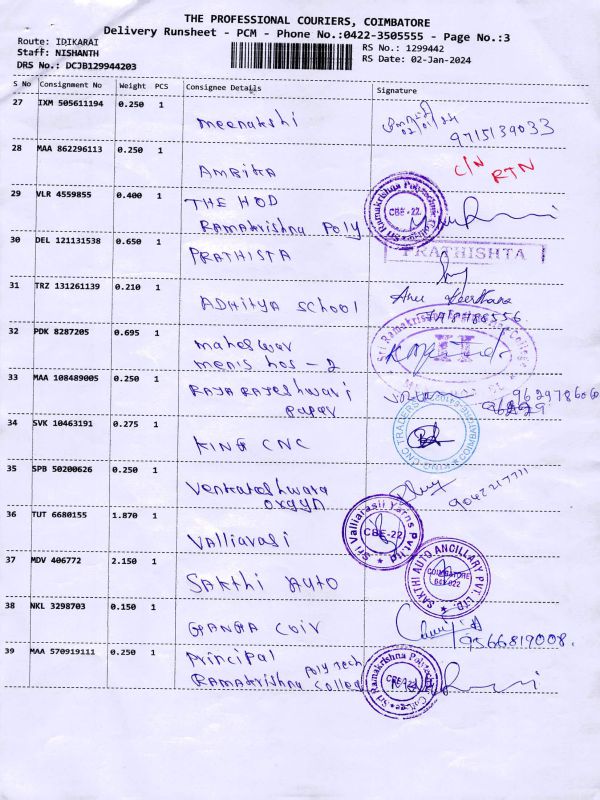 THE PROFESSIONAL COURIERS, COIMBATORE
Delivery Runsheet - PCM - Phone No.:0422-3505555 - Page No.:3
Route: IDIKARAI
RS No.: 1299442
Staff: NISHANTH
RS Date: 02-Jan-2024
DRS No.: DCJB129944203
S No Consignment No Weight PCS Consignee Details Signature
27 IXM 505611194 0.250 1
meenakshi
02/01/24
9715139033
28 MAA 862296113 0.250 1
AMBIKA
C/N RTN
29 VLR 4559855 0.400 1
THE HOD
Ramakrishna Poly
Sri Ramakrishna Polytechnic College
CBE-22.
30 DEL 121131538 0.650 1
PRATHISTA
PRATHISHTA
31 TRZ 131261139 0.210 1
ADHITYA School
Anu Keerthana
32 PDK 8287205 0.695 1
maheswar
men's hos - 2
Sri Ramakrishna
33 MAA 108489005 0.250 1
RAJA RAJESHWARI
Paper
9629786060
34 SVK 10463191 0.275 1
KING CNC
KING CNC TRADERS
COIMBATORE
35 SPB 50200626 0.250 1
Venkateshwara
oxygn
9042217711
36 TUT 6680155 1.870 1
Valliarasi
Sri Valliarasii Yarns Pvt. Ltd.
CBE-22
37 MDV 406772 2.150 1
SAKTHI AUTO
SAKTHI AUTO ANCILLARY PVT. LTD.
COIMBATORE
641 022
38 NKL 3298703 0.150 1
GANGA Coir
9566819008.
39 MAA 570919111 0.250 1
Principal
Poly tech
Ramakrishna College
Sri Ramakrishna Polytechnic College
CBE-22